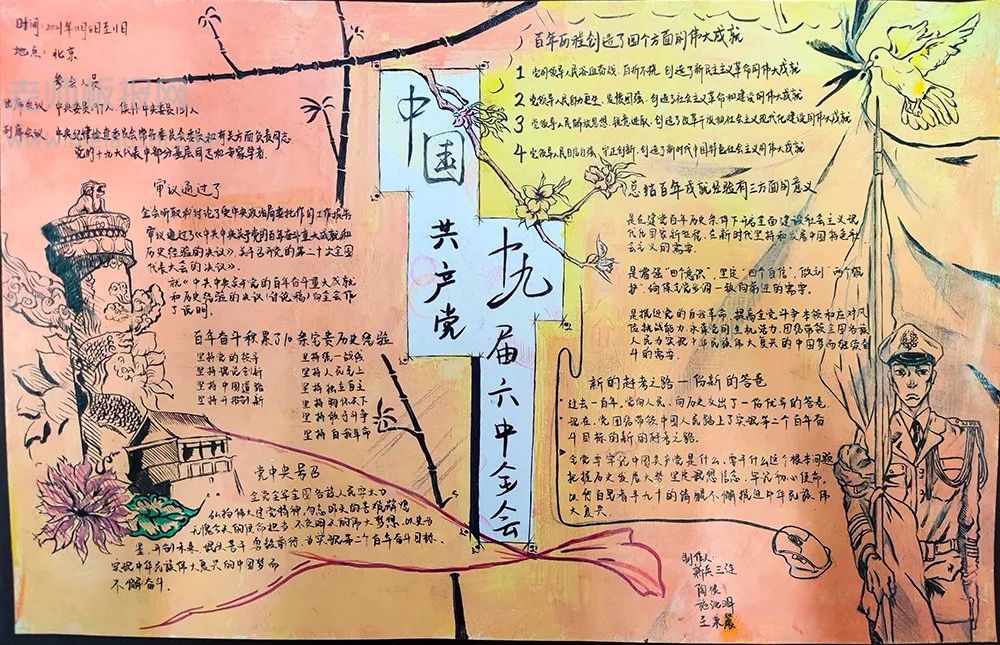 时间：2021年11月8日至11日
地点：北京
参会人员
出席会议 中央委员197人，候补中央委员151人
列席会议 中央纪律检查委员会常务委员会委员和有关方面负责同志
党的十九大代表中部分基层同志和专家学者.
审议通过了
全会听取和讨论了受中央政治局委托作的工作报告
审议通过了《中共中央关于党的百年奋斗重大成就和
历史经验的决议》，关于召开党的第二十次全国
代表大会的决议》.
就《中共中央关于党的百年奋斗重大成就
和历史经验的决议（讨论稿）向全会作
了说明.
百年奋斗积累了10条宝贵历史经验
坚持党的领导
坚持理论创新
坚持中国道路
坚持开拓创新
坚持统一战线
坚持人民至上
坚持独立自主
坚持胸怀天下
坚持敢于斗争
坚持自我革命
党中央号召
全党全军全国各族人民要大力
弘扬伟大建党精神，勿忘昨天的苦难辉煌
无愧今天的使命担当，不负明天的伟大梦想，以史为
鉴、开创未来，埋头苦干、勇毅前行，为实现第二个百年奋斗目标、
实现中华民族伟大复兴的中国梦而
不懈奋斗.
中国
共产党
十九
届六中全会
百年历程创造了四个方面的伟大成就
1 党的领导人民浴血奋战、百折不挠，创造了新民主主义革命的伟大成就
2 党领导人民自力更生、发愤图强，创造了社会主义革命和建设的伟大成就
3 党领导人民解放思想、锐意进取，创造了改革开放和社会主义现代化建设的伟大成就
4 党领导人民自信自强、守正创新，创造了新时代中国特色社会主义的伟大成就
总结百年成就经验有三方面的意义
是在建党百年历史条件下开启全面建设社会主义现
代化国家新征程、在新时代坚持和发展中国特色社
会主义的需要.
是增强“四个意识”、坚定“四个自信”、做到“两个维
护”，确保全党步调一致向前进的需要.
是推进党的自我革命、提高全党斗争本领和应对风
险挑战能力、永葆党的生机活力、团结带领全国各族
人民为实现中华民族伟大复兴的中国梦而继续奋
斗的需要.
新的赶考之路一份新的答卷
过去一百年，党向人民、向历史交出了一份优异的答卷.
现在，党团结带领中国人民踏上了实现第二个百年奋
斗目标的新的赶考之路.
全党要牢记中国共产党是什么、要干什么这个根本问题
把握历史发展大势，坚定理想信念，牢记初心使命，
以行百里者半九十的清醒不懈推进中华民族伟
大复兴.
制作人：
新兵三连
老师板报网